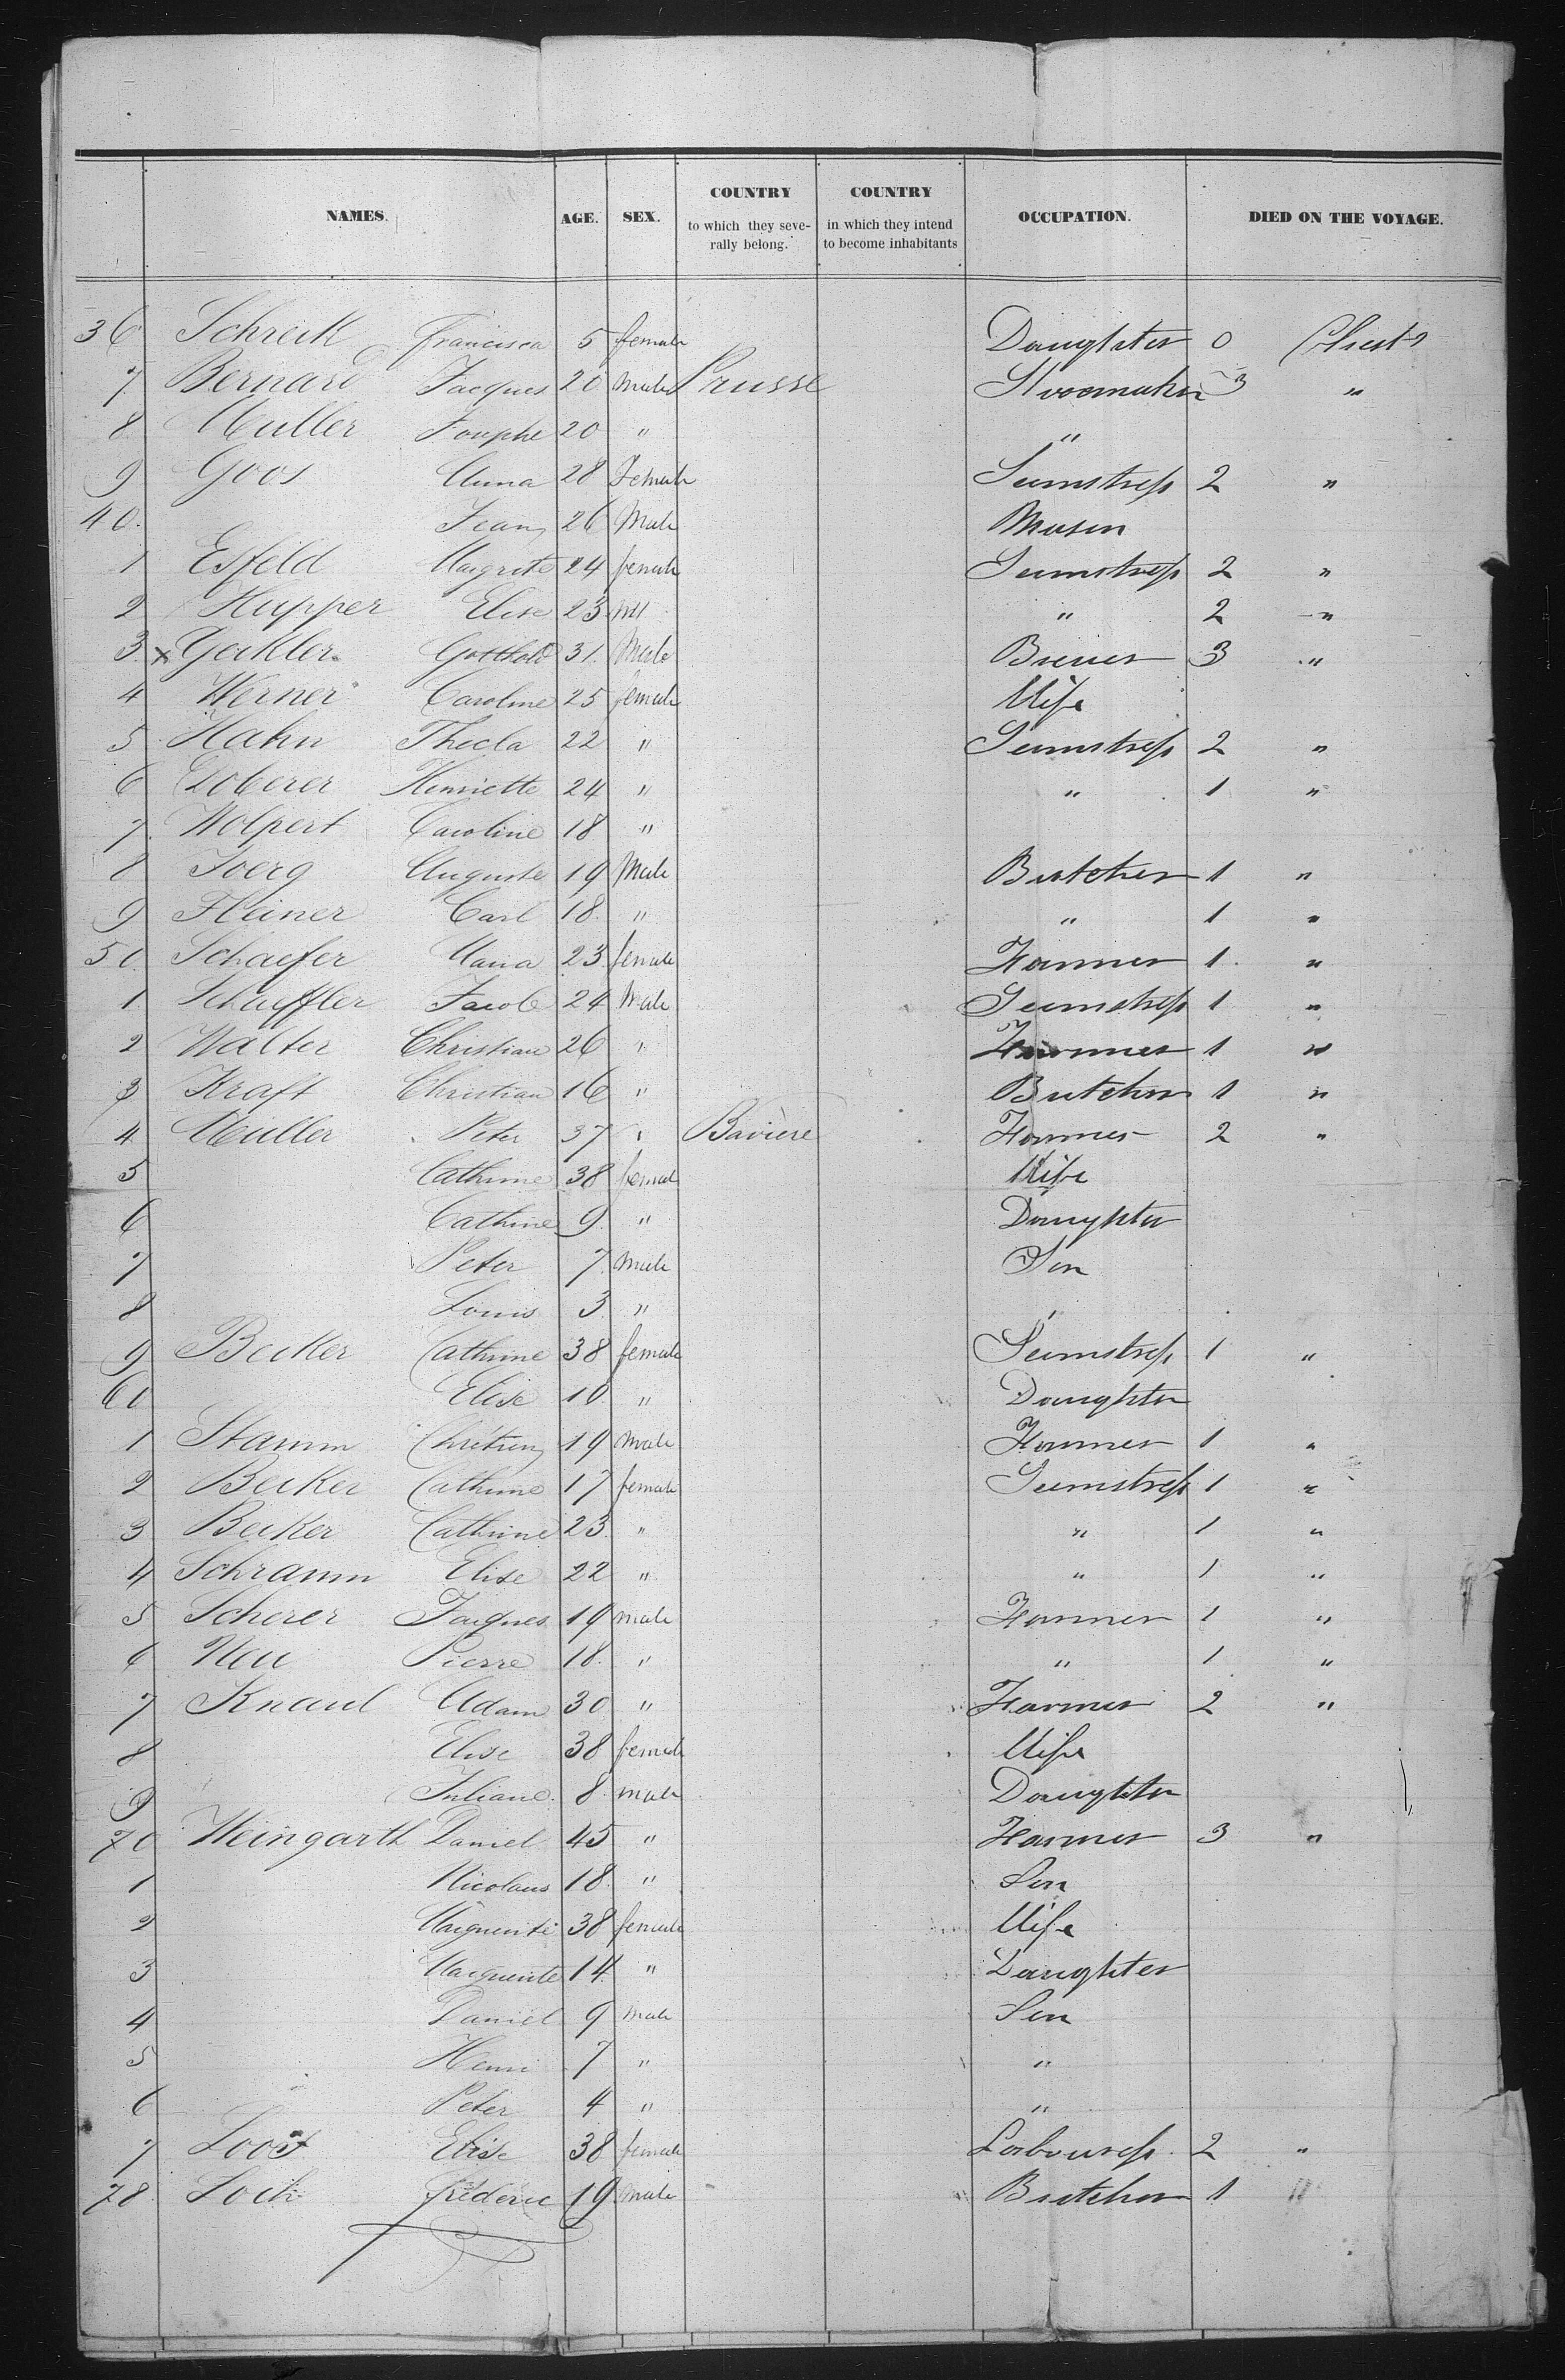 NAMES. AGE. SEX. COUNTRY to which they severally belong. COUNTRY in which they intend to become inhabitants OCCUPATION. DIED ON THE VOYAGE.
36 Schreik Francisca 5 female Daughter 0 Chest
7 Bernard Jacques 20 male Prusse Shoemaker 3 "
8 Muller Josephe 20 " "
9 Goos Anna 28 Female Seamstress 2 "
40. Jean 26 Male Mason
1 Esfeld Margrite 24 female Seamstress 2 "
2 Hupper Elise 23 " 2 "
3. x Geikler Gotthold 31. Male Brewer 3 "
4 Werner Caroline 25 female Wife
5 Hahn Thecla 22 " Seamstress 2 "
6 Doberer Henriette 24 " " 1 "
7. Wolpert Caroline 18 "
8 Joerg Auguste 19 Male Butcher 1 "
9 Heiner Carl 18. " " 1 "
50. Schaefer Maria 23. female Farmer 1. "
1. Schaeffler Jacob 24 Male Seamstress 1 "
2 Walter Christian 26 " Farmer 1 "
3 Kraft Christian 16 " Butcher 1 "
4 Müller Peter 37 " Bavière Farmer 2 "
5 Cathrine 38 female Wife
6 Cathrine 9. " Daughter
7 Peter 7. male Son
8 Louis 3 " "
9 Becker Cathrine 38 female Seamstress 1 "
60 Elise 10. " Daughter
1 Stamm Chrétien 19 male Farmer 1 "
2 Becker Cathrine 17 female Seamstress 1 "
3 Becker Cathrine 23. " " 1 "
4 Schramm Elise 22 " " 1 "
5 Scherer Jaques 19 male Farmer 1 "
6 Neu Pierre 18. " " 1 "
7 Knaul Adam 30 " Farmer 2 "
8 Elise 38 female Wife
9 Juliane 8. male Daughter
70 Weingarth Daniel 45 " Farmer 3 "
1 Nicolaus 18. " Son
2 Marguerite 38 female Wife
3 Marguerite 14. " Daughter
4 Daniel 9 male Son
5 Henri 7 " "
6 Peter 4 " "
7 Loos Elise 38 female 2 "
78. Frederic 19. male Butcher 1 "